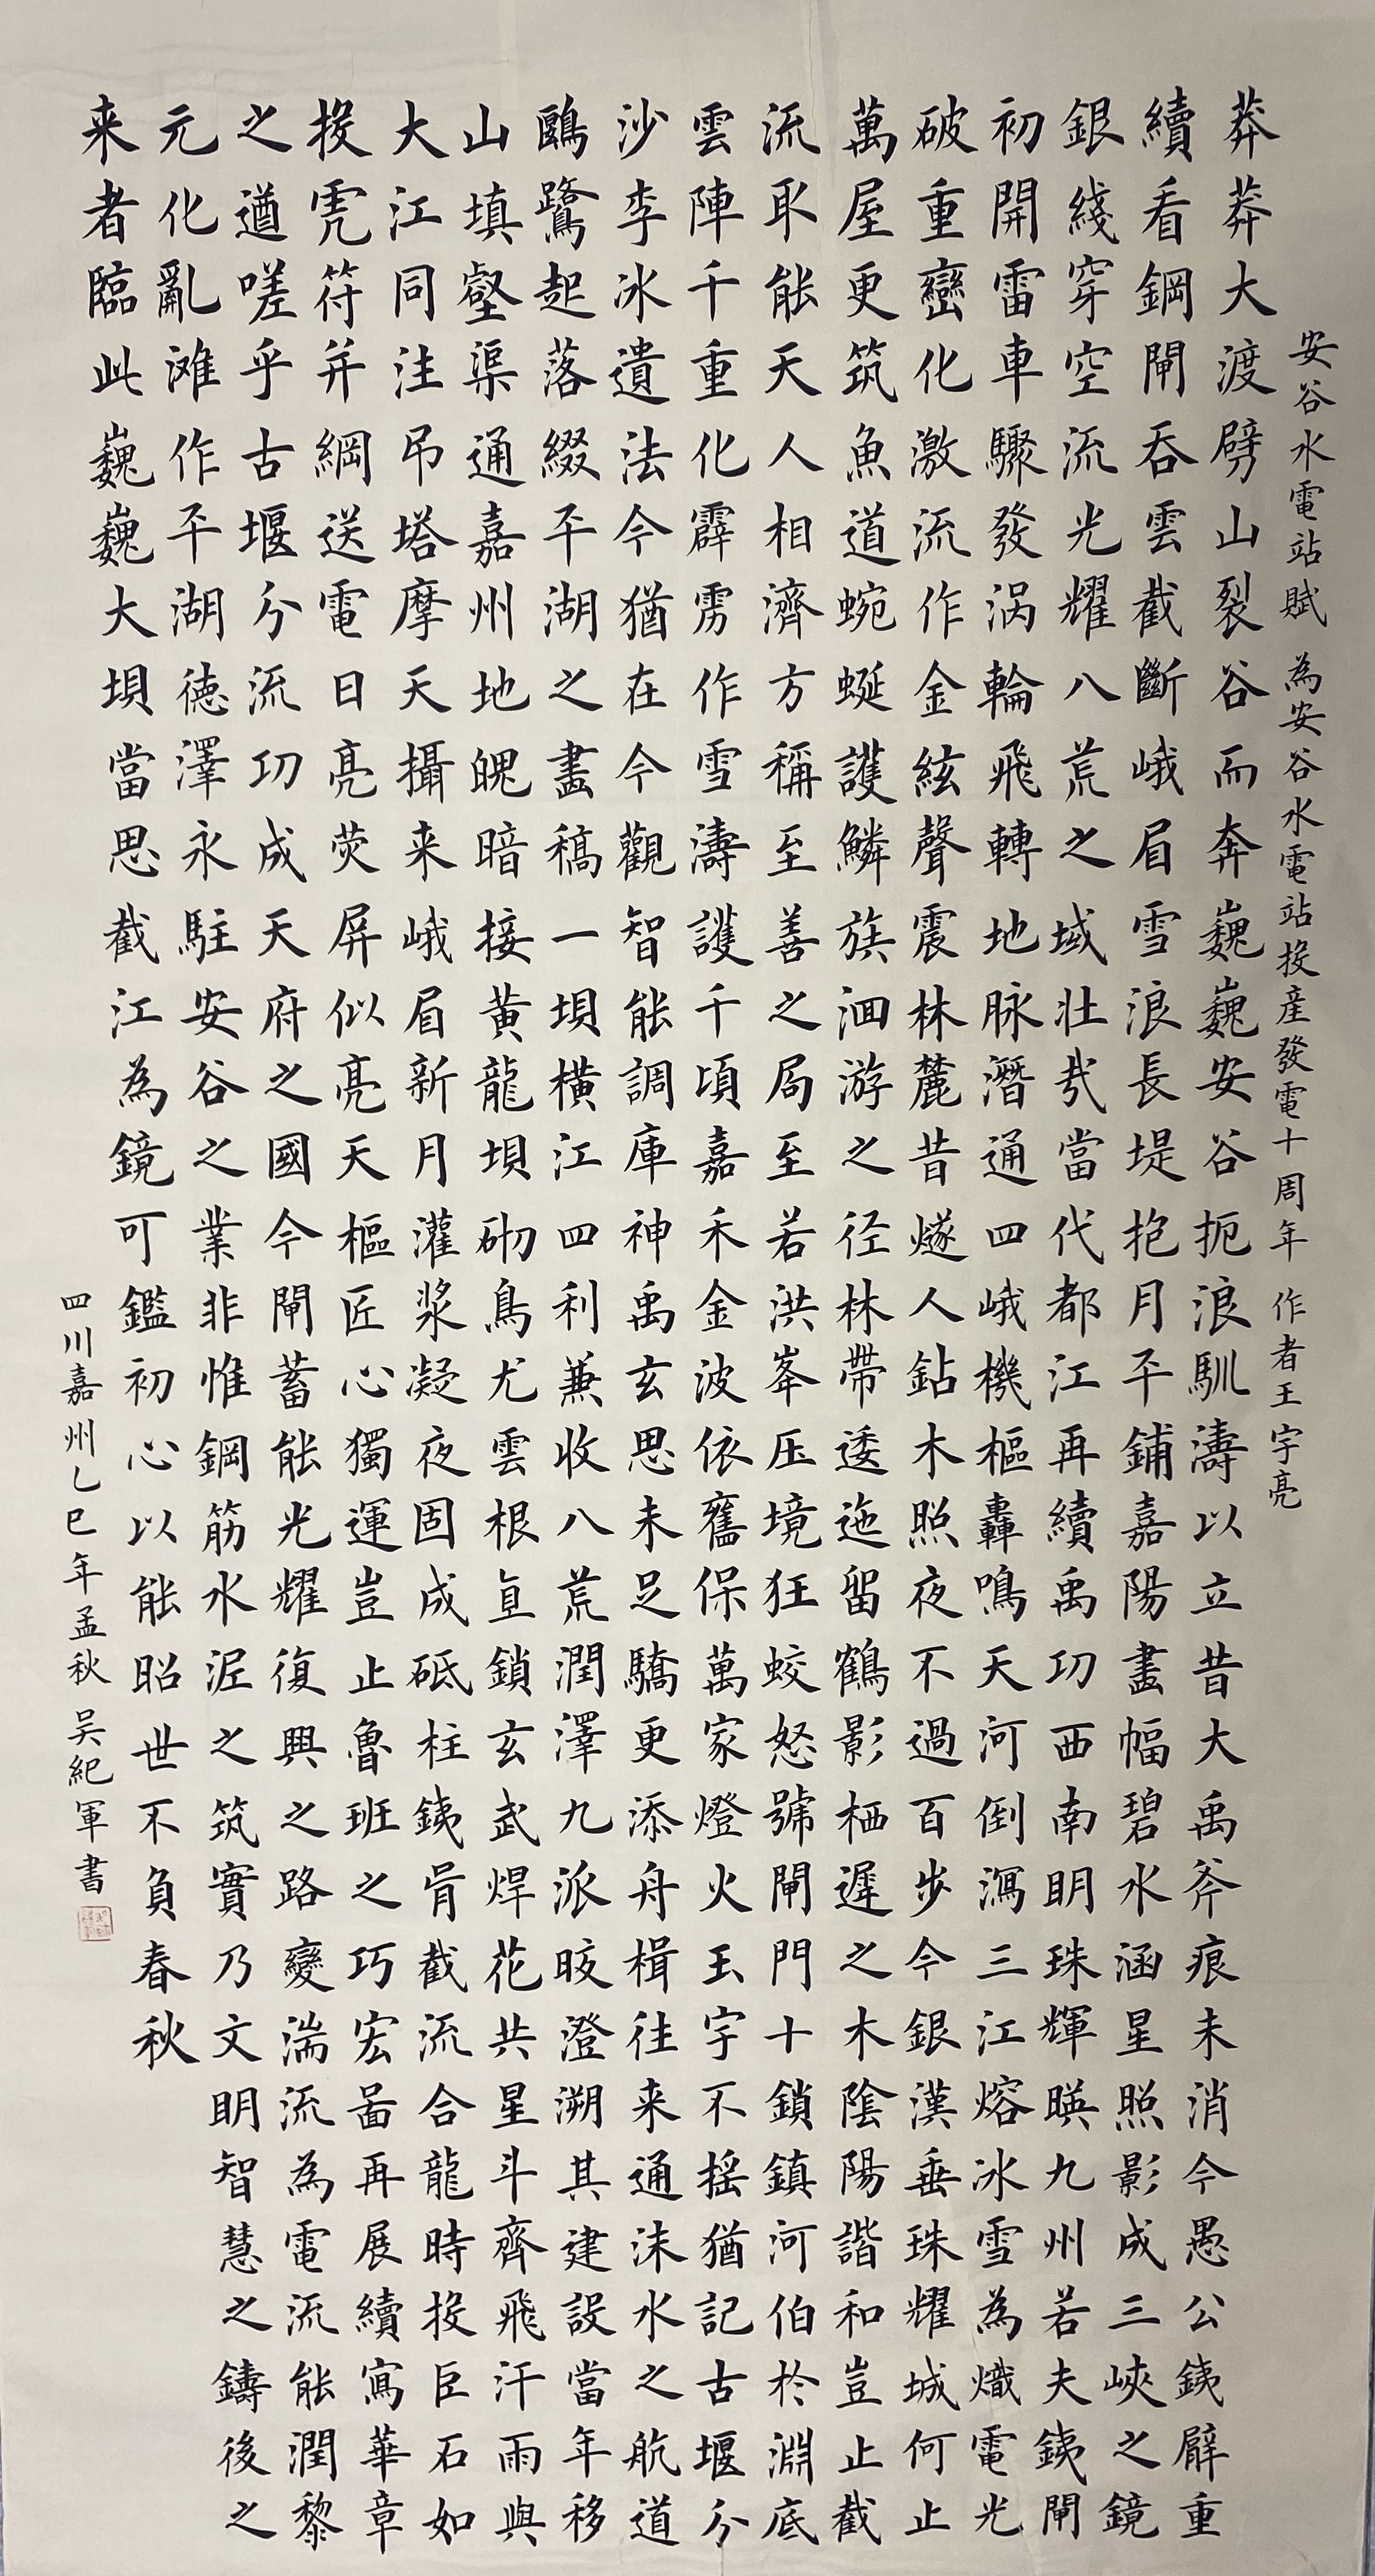 安谷水電站賦 為安谷水電站投産發電十周年 作者王宇亮
莽莽大渡劈山裂谷而奔巍巍安谷扼浪馴濤以立昔大禹斧痕未消今愚公銕臂重
續看鋼閘吞雲截斷峨眉雪浪長堤抱月平鋪嘉陽畫幅碧水涵星照影成三峽之鏡
銀綫穿空流光耀八荒之域壯哉當代都江再續禹功西南明珠輝暎九州若夫銕閘
初開雷車驟發涡輪飛轉地脉潛通四峨機樞轟鳴天河倒瀉三江熔冰雪為熾電光
破重巒化激流作金絃聲震林麓昔燧人鉆木照夜不過百步今銀漢垂珠耀城何止
萬屋更筑魚道蜿蜒護鱗族洄游之径林帶逶迤留鶴影栖遲之木陰陽諧和豈止截
流取能天人相濟方稱至善之局至若洪峯压境狂蛟怒號閘門十鎖鎮河伯於淵底
雲陣千重化霹雳作雪濤護千頃嘉禾金波依舊保萬家燈火玉宇不摇猶記古堰分
沙李冰遺法今猶在今觀智能調庫神禹玄思未足驕更添舟楫往来通沫水之航道
鷗鷺起落綴平湖之畫稿一壩橫江四利兼收八荒潤澤九派晈澄溯其建設當年移
山填壑渠通嘉州地魄暗接黄龍壩砌鳥尤雲根亘鎖玄武焊花共星斗齊飛汗雨與
大江同注吊塔摩天攝来峨眉新月灌漿凝夜固成砥柱銕脊截流合龍時投巨石如
投虎符并網送電日亮荧屏似亮天樞匠心獨運豈止魯班之巧宏啚再展續寫華章
之遒嗟乎古堰分流功成天府之國今閘蓄能光耀復興之路變湍流為電流能潤黎
元化亂滩作平湖德澤永駐安谷之業非惟鋼筋水泥之筑實乃文明智慧之鑄後之
来者臨此巍巍大壩當思截江為鏡可鑑初心以能昭世不負春秋
四川嘉州乙巳年孟秋 吴紀軍書